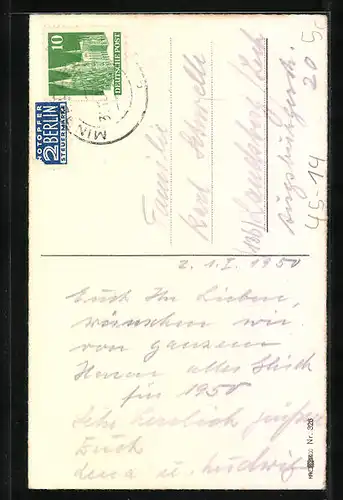 10
DEUTSCHE POST
NOTOPFER
2 BERLIN
STEUERMARKE
MIN
Familie
Karl
(13b) Landsberg/Lech
Augsburgerstr.
20
45-14
z. 1. I. 1950
Euch Ihr Lieben,
wünschen wir
von ganzem
Herzen alles Glück
für 1950
Sehr herzlich grüßen
Euch
u. Ludwig
Nr. 328